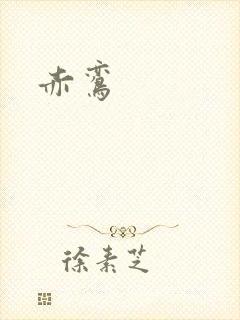 赤鸾
徐素芝